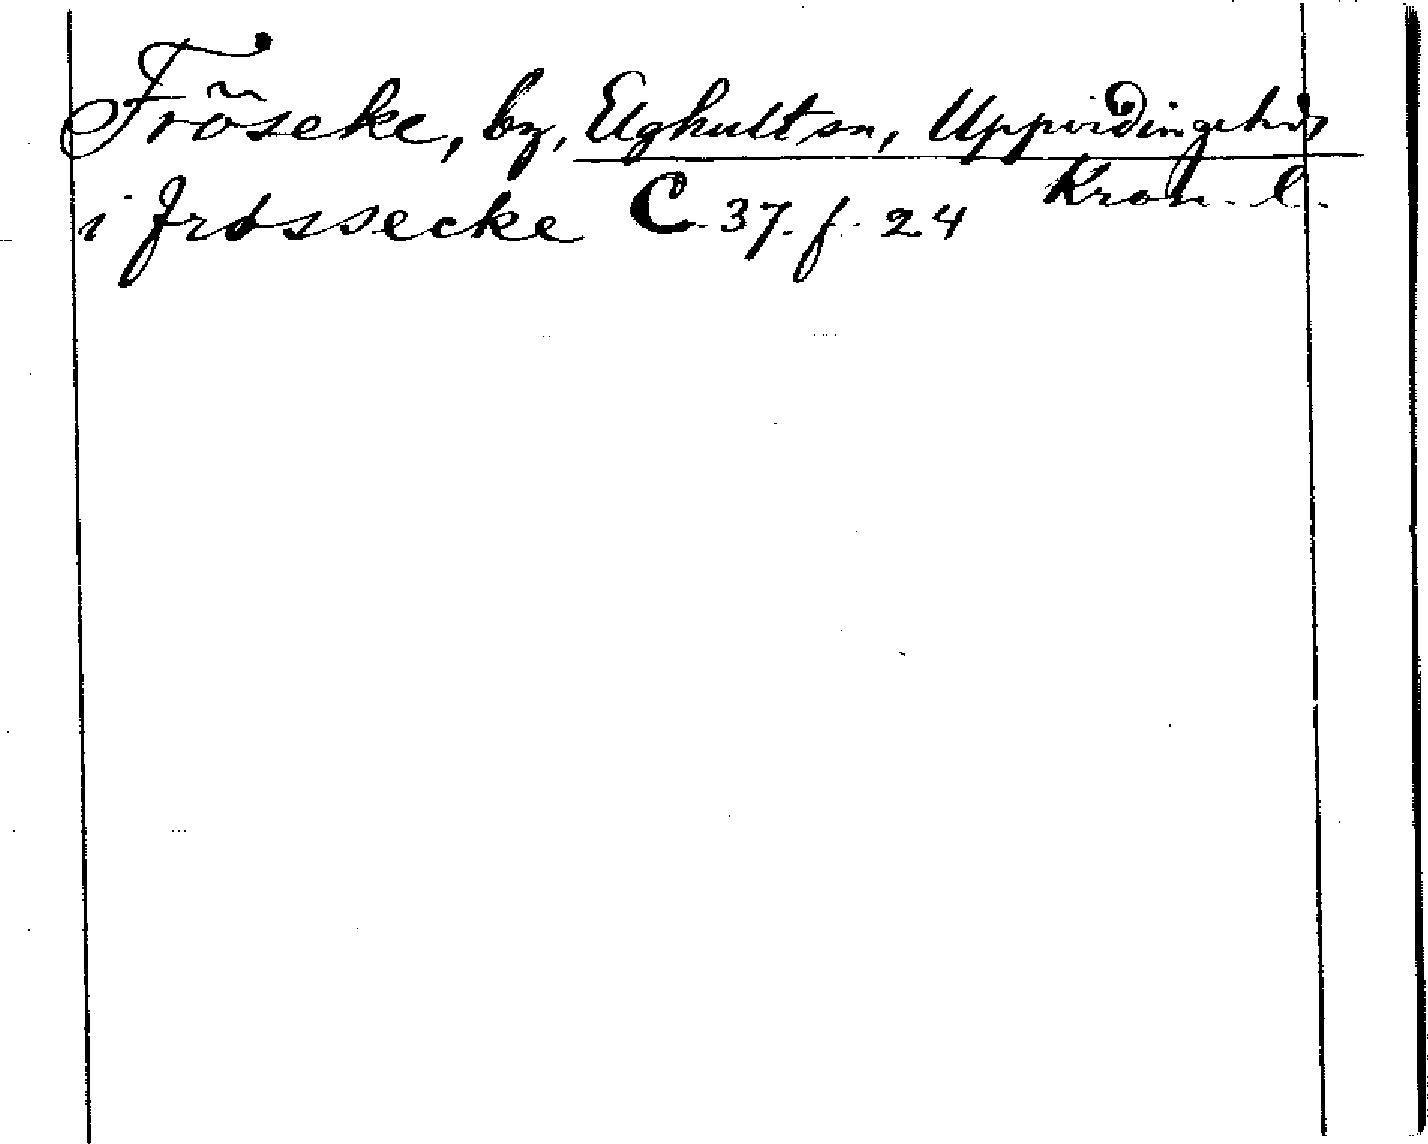 Fröseke, by, Elghult sn, Uppvidinge hd,
Kron. l.
i frossecke C 37. f. 24